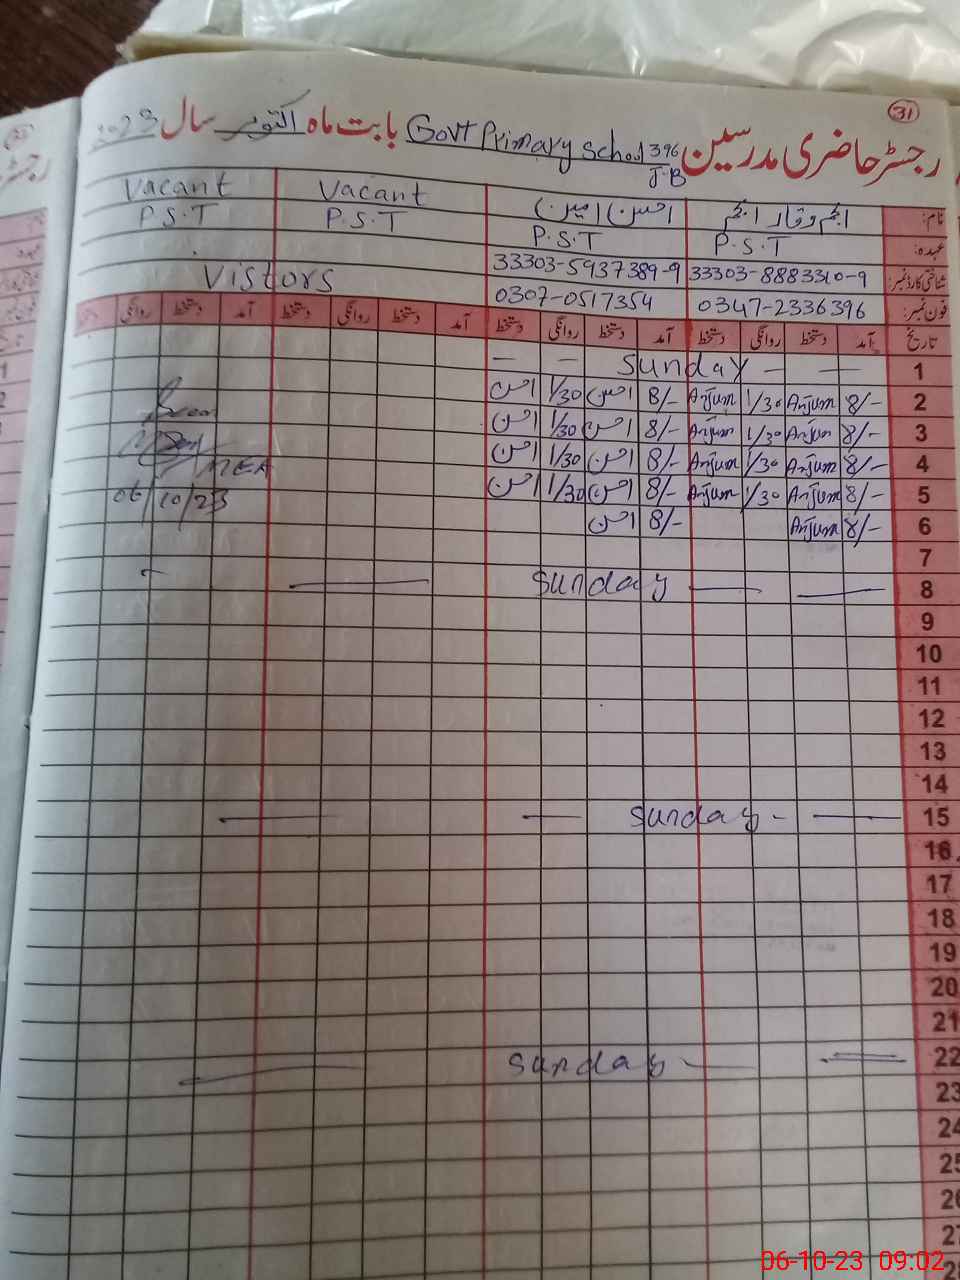 31
رجسٹر حاضری مدرسین Govt Primary School 396 J-B بابت ماہ اکتوبر سال 2023
نام: انجم وقار انجم احسن امین Vacant Vacant
عہدہ: P.S.T P.S.T P.S.T P.S.T
شناختی کارڈ نمبر: 33303-8883310-9 33303-5937389-9 Vistors
فون نمبر: 0347-2336396 0307-0517354
تاریخ آمد دستخط روانگی دستخط آمد دستخط روانگی دستخط آمد دستخط روانگی دستخط آمد دستخط روانگی دستخط
1 — Sunday — — —
2 8/- Anjum 1/30 Anjum 8/- احسن 1/30 احسن
3 8/- Anjum 1/30 Anjum 8/- احسن 1/30 احسن
4 8/- Anjum 1/30 Anjum 8/- احسن 1/30 احسن MEA
5 8/- Anjum 1/30 Anjum 8/- احسن 1/30 احسن 06/10/23
6 8/- Anjum 8/- احسن
7
8 — — Sunday —
9
10
11
12
13
14
15 — Sunday — —
16
17
18
19
20
21
22 — Sunday —
23
24
25
26
27
28
06-10-23 09:02